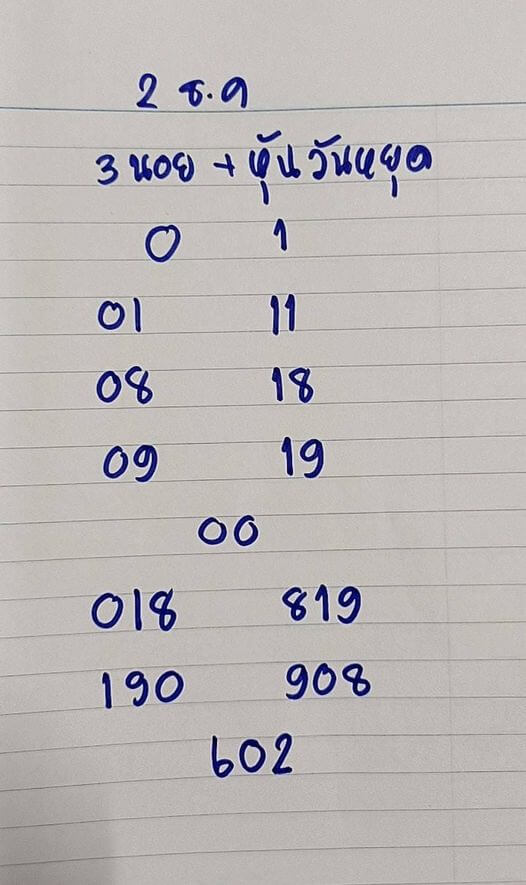 2 ธ.ค
3 นอย + หุ้นวันหยุด
0 1
01 11
08 18
09 19
00
018 819
190 908
602